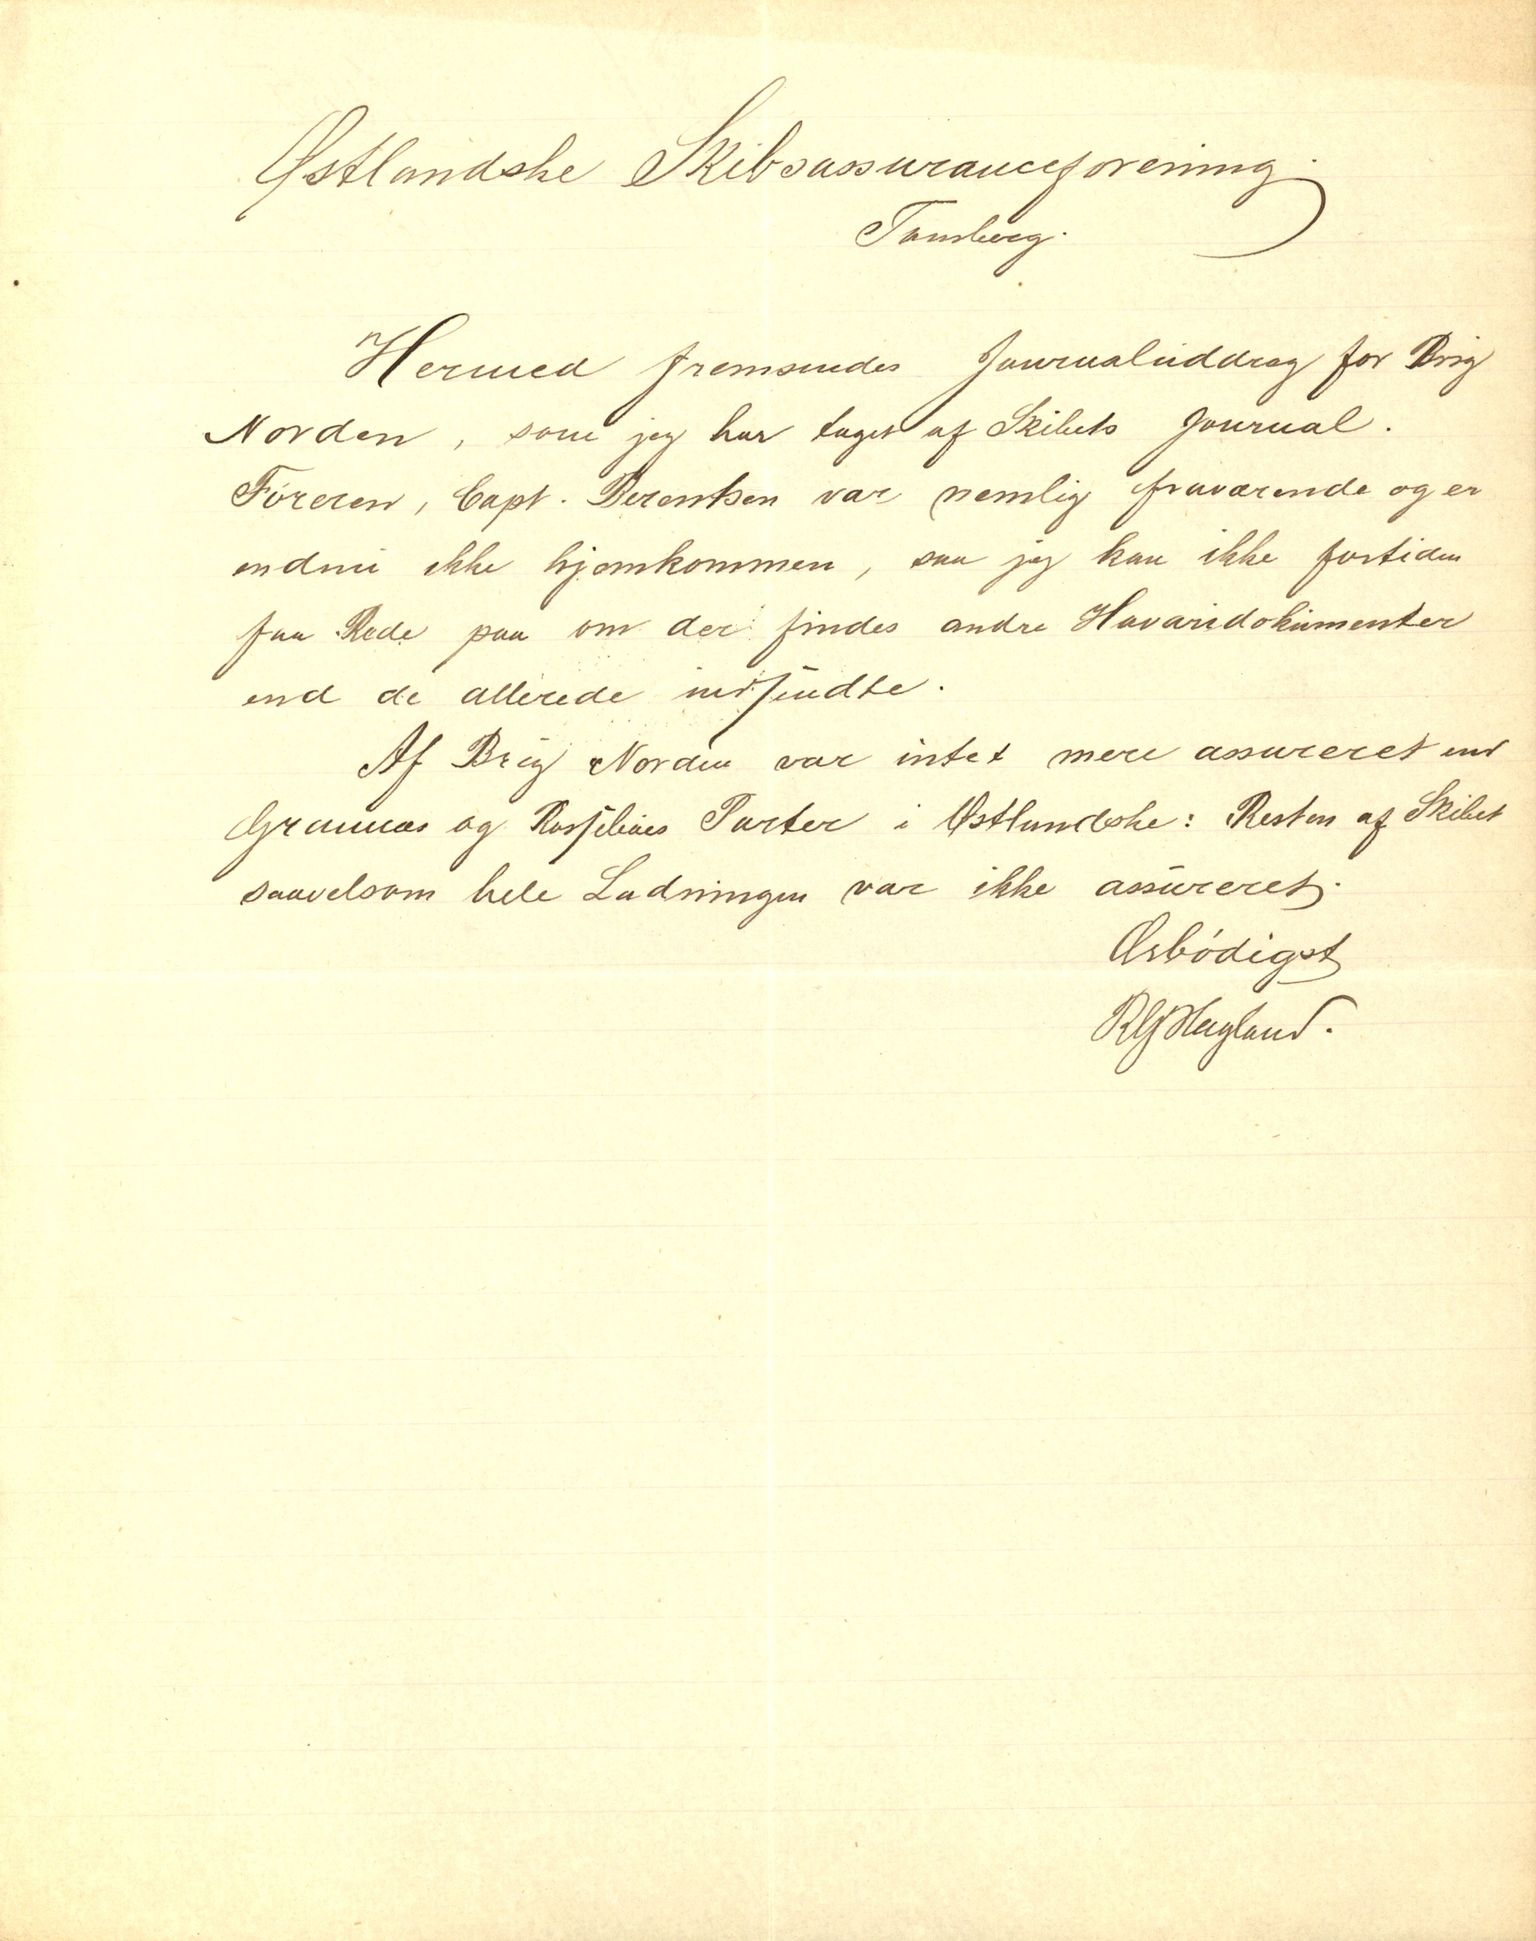 Østlandske Skibsassuranceforening.
Tønsberg.
Hermed fremsendes Journaluddrag for Brig
Norden, som jeg har taget af Skibets Journal.
Føreren, Capt. Berentsen var nemlig fraværende og er
endnu ikke hjemkommen, saa jeg kan ikke fortiden
faa Rede paa om der findes andre Havaridokumenter
end de allerede indsendte.
Af Brig Norden var intet mere assureret end
og Parter i Østlandske: Resten af Skibet
saavelsom hele Ladningen var ikke assureret.
Ærbødigst
RG Hagland.